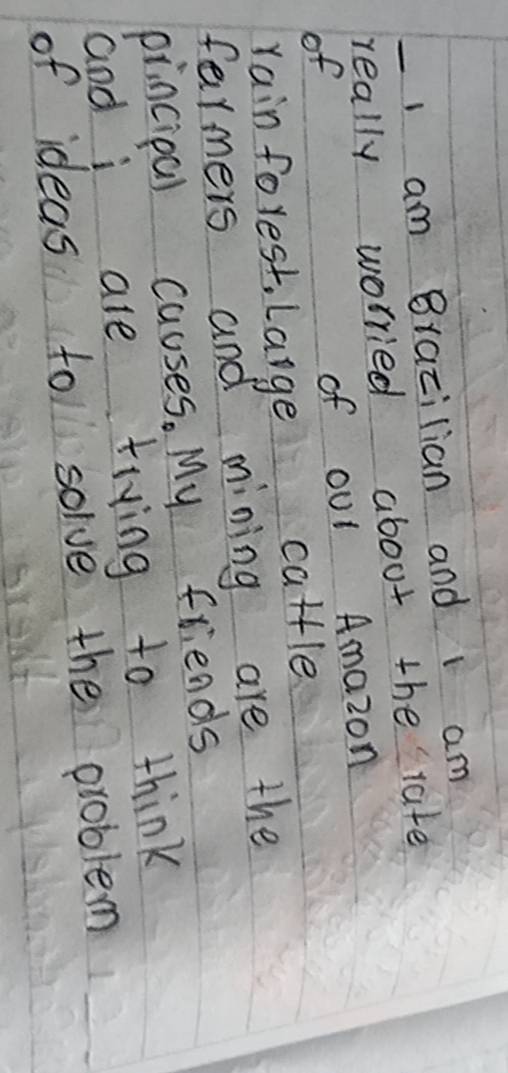 - I am Brazilian and I am
really worried about the rate
of of our Amazon
rain forest. Large cattle
farmers and mining are the
principal causes. My friends
and i are trying to think
of ideas to solve the problem